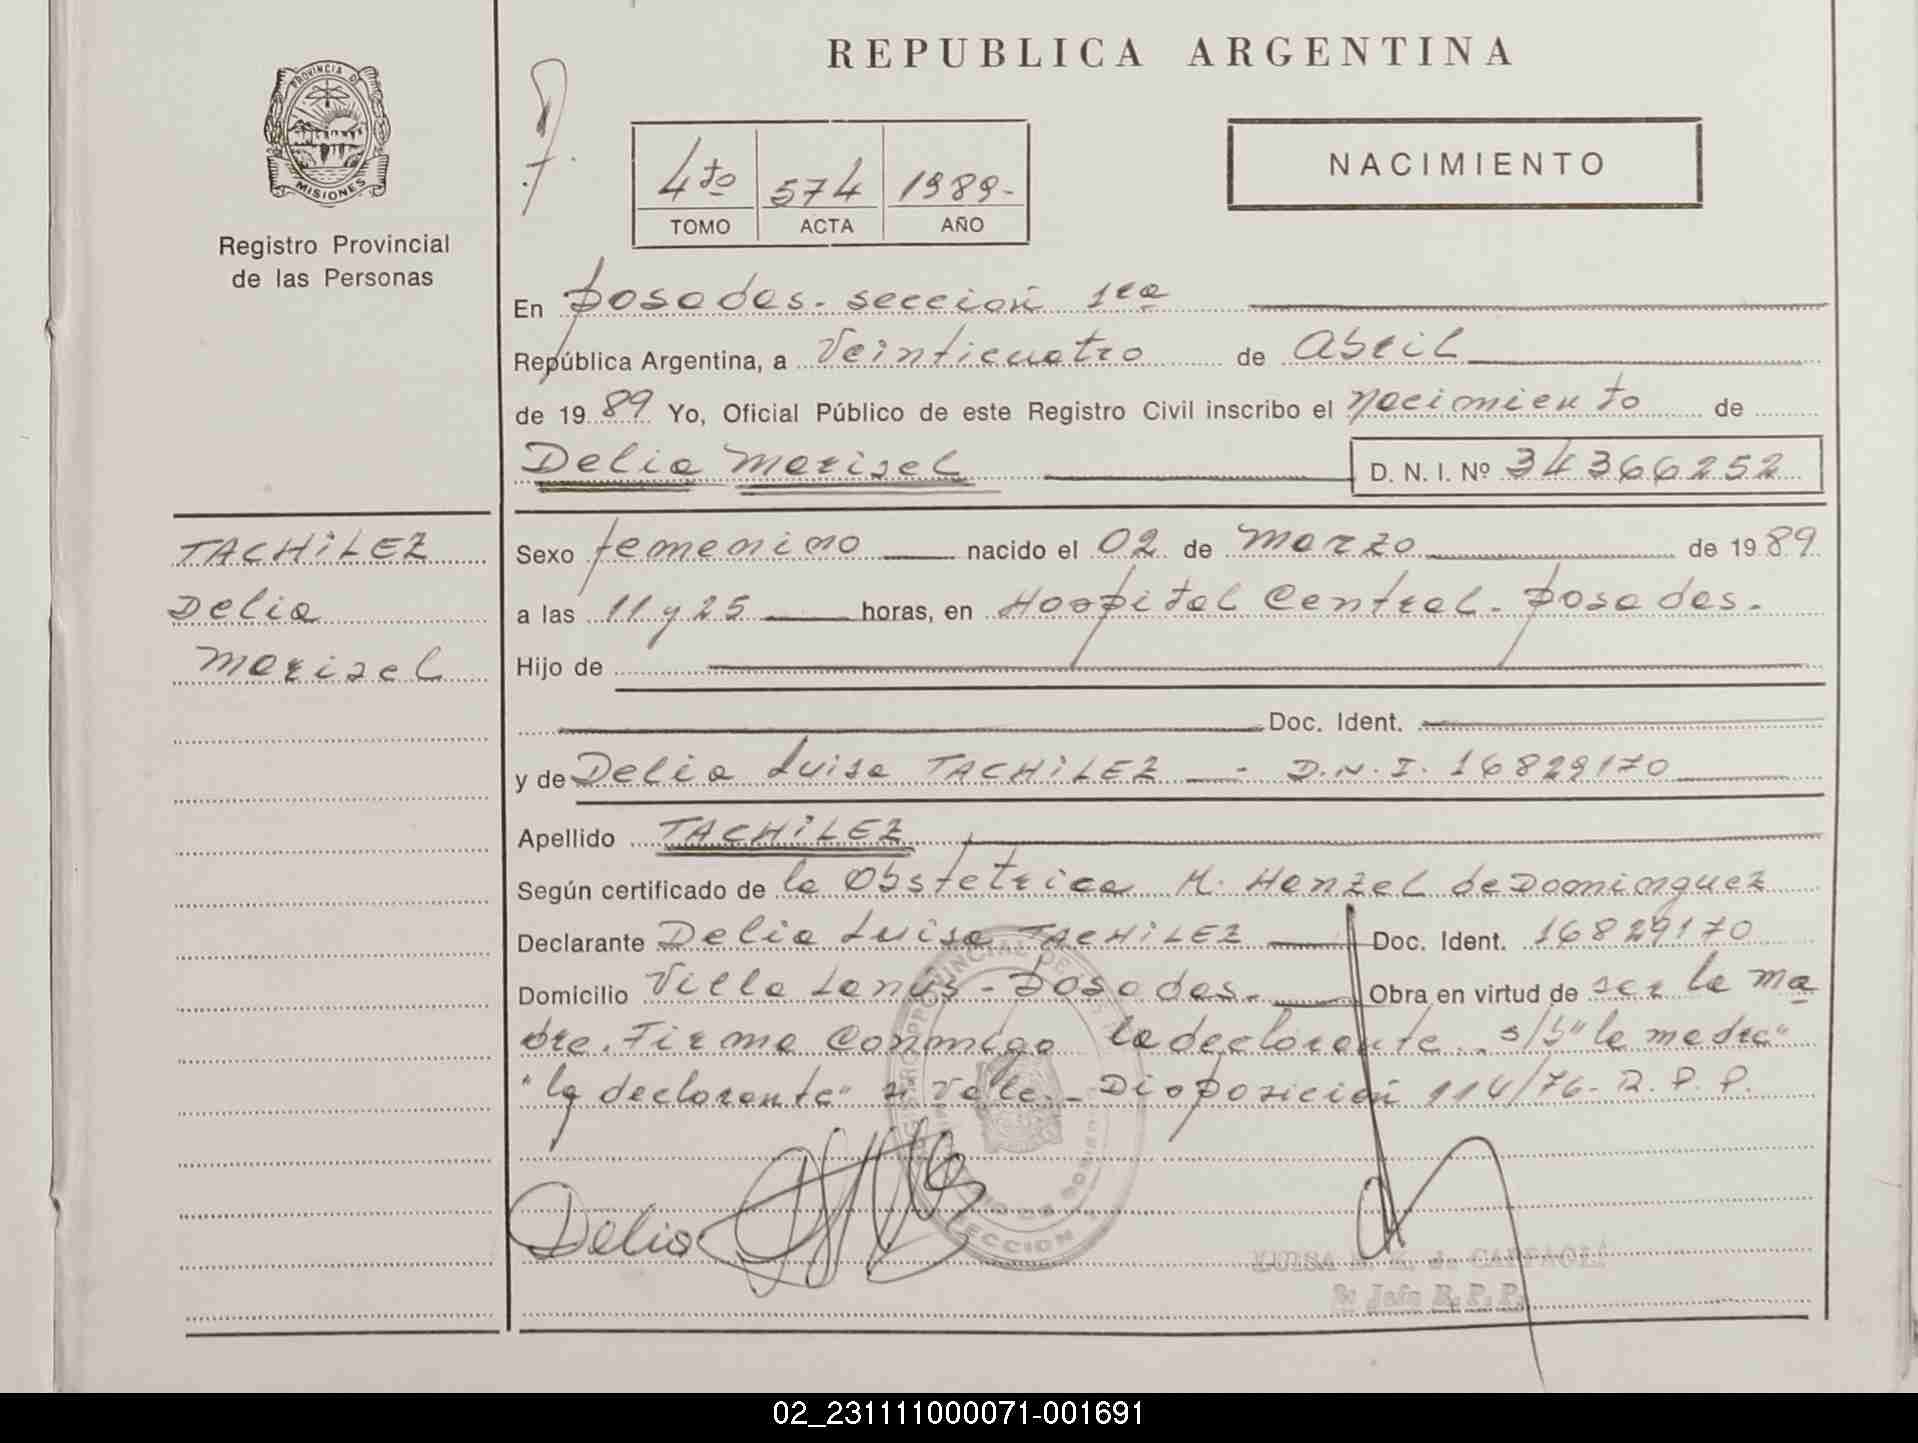 REPUBLICA ARGENTINA
PROVINCIA DE
MISIONES
Registro Provincial
de las Personas
4to 574 1989-
TOMO ACTA AÑO
NACIMIENTO
En Posadas - sección 1ra
República Argentina, a Veinticuatro de Abril
de 1989 Yo, Oficial Público de este Registro Civil inscribo el nacimiento de
Delia Marisel D. N. I. Nº 34366252
TACHiLEZ
Delia
Marisel
Sexo femenino nacido el 02 de Marzo de 1989
a las 11 y 25 horas, en Hospital Central - Posadas.
Hijo de
Doc. Ident.
y de Delia Luisa TACHiLEZ - D.N.I. 16829170
Apellido TACHiLEZ
Según certificado de la Obstetrica M. Henzel de Dominguez
Declarante Delia Luisa TACHiLEZ Doc. Ident. 16829170
Domicilio Villa Lanús - Posadas. Obra en virtud de ser la ma
dre. Firma conmigo la declarante. s/b "la madre"
"la declarante" si vale. - Disposición 114/76 - R. P. P.
Delia
LUISA
R. P. P.
SECCION
02_231111000071-001691